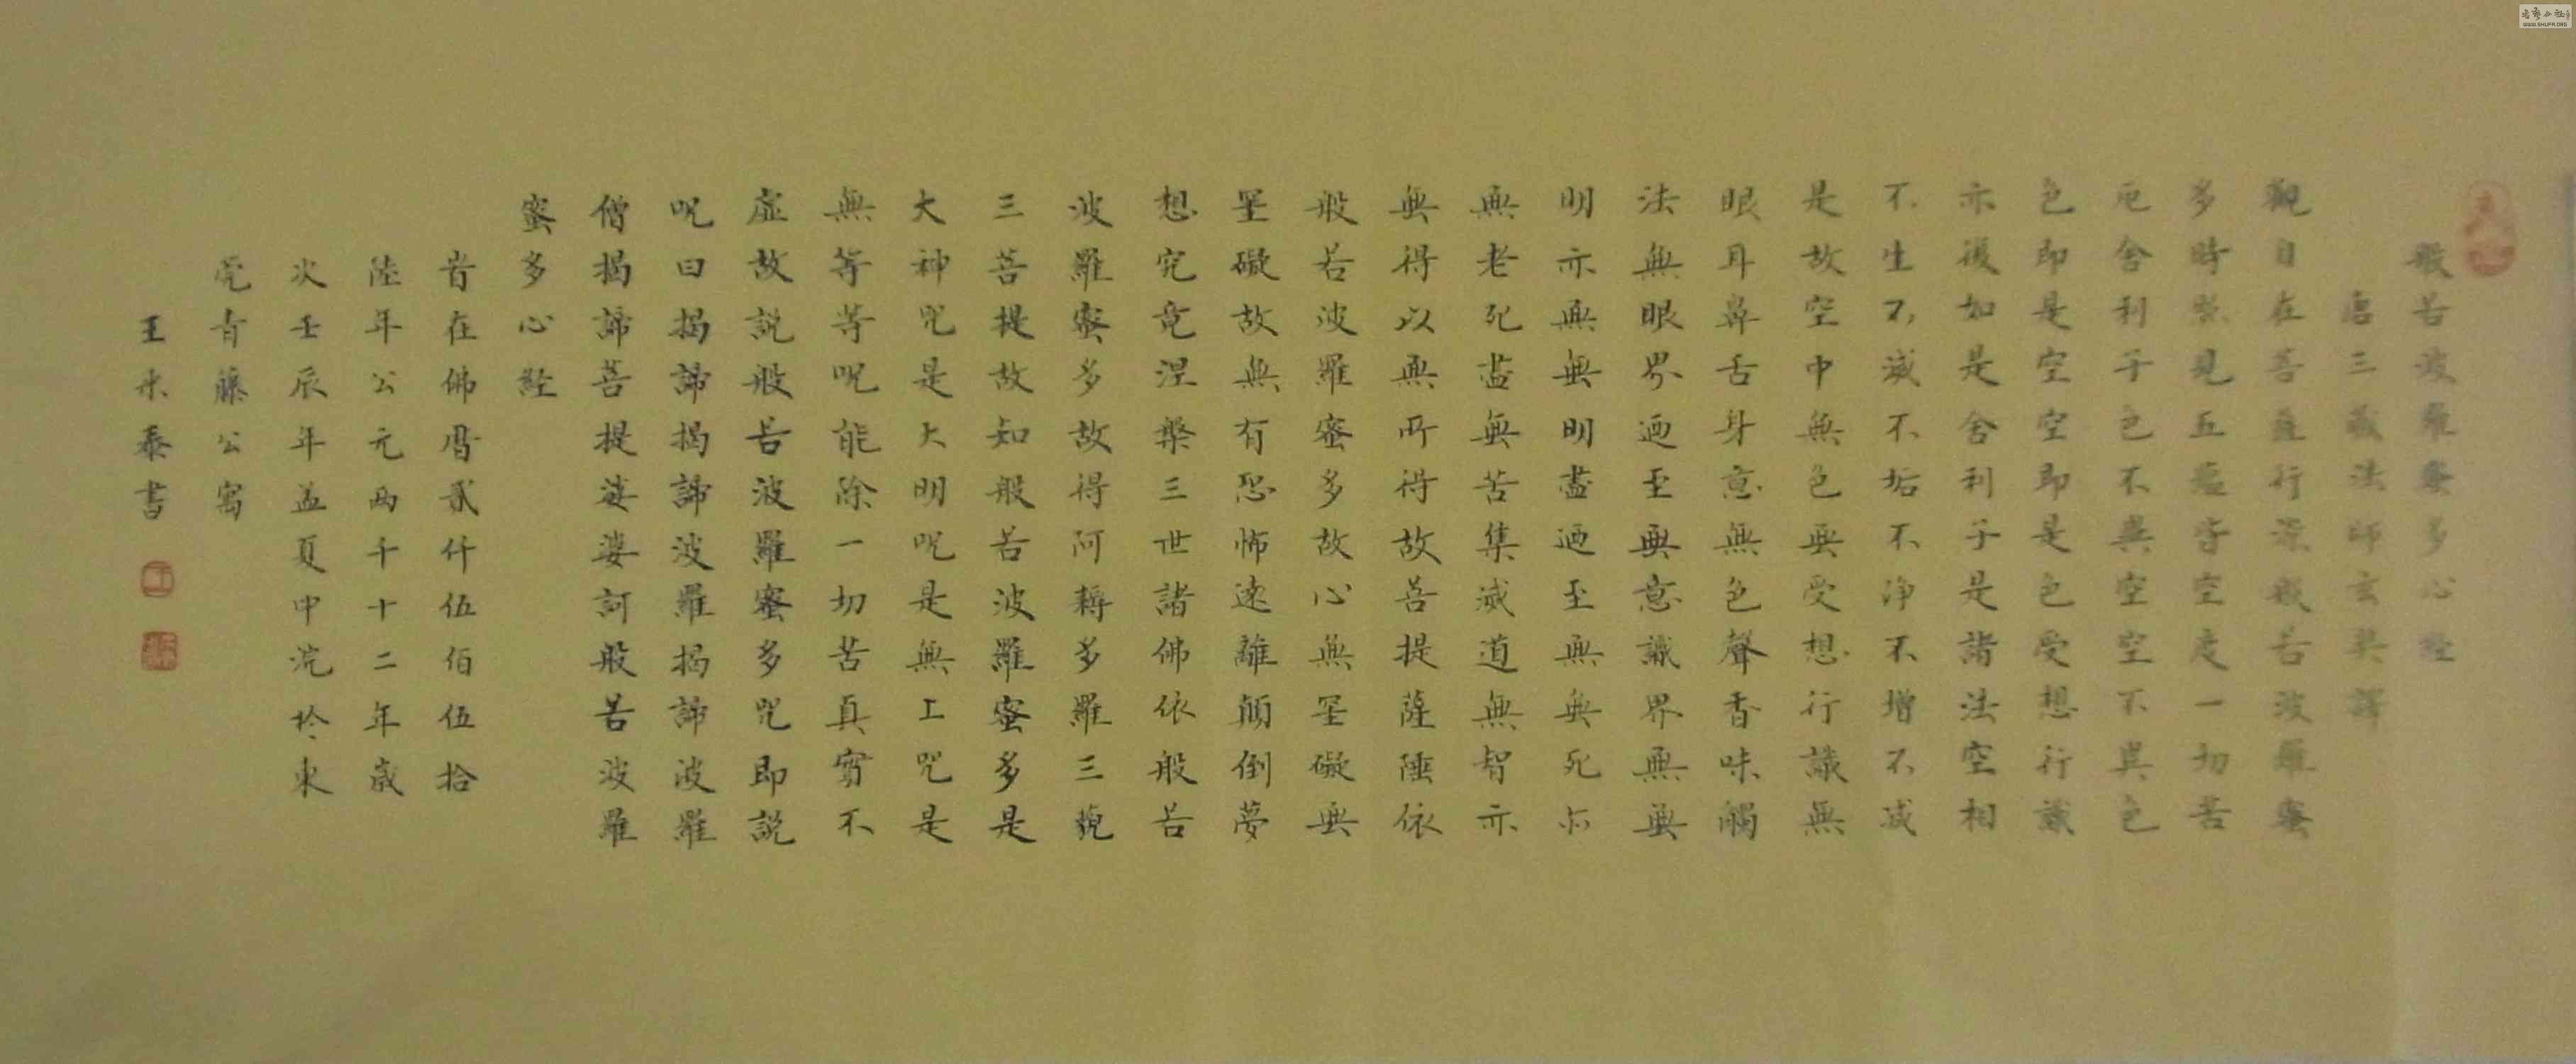 般若波羅蜜多心經
唐三藏法師玄奘譯
觀自在菩薩行深般若波羅蜜
多時照見五蘊皆空度一切苦
厄舍利子色不異空空不異色
色即是空空即是色受想行識
亦復如是舍利子是諸法空相
不生不滅不垢不净不增不減
是故空中無色無受想行識無
眼耳鼻舌身意無色聲香味觸
法無眼界迺至無意識界無無
明亦無無明盡迺至無無死亦
無老死盡無苦集滅道無智亦
無得以無所得故菩提薩埵依
般若波羅蜜多故心無罣礙無
罣礙故無有恐怖遠離顛倒夢
想究竟涅槃三世諸佛依般若
波羅蜜多故得阿耨多羅三藐
三菩提故知般若波羅蜜多是
大神咒是大明咒是無上咒是
無等等咒能除一切苦真實不
虛故説般若波羅蜜多咒即説
咒曰揭諦揭諦波羅揭諦波羅
僧揭諦菩提娑婆訶般若波羅
蜜多心經
昔在佛曆貳仟伍佰伍拾
陸年公元兩千十二年歲
次壬辰年孟夏中浣於東
莞青藤公寓
王米泰書
WWW.SHUFA.ORG